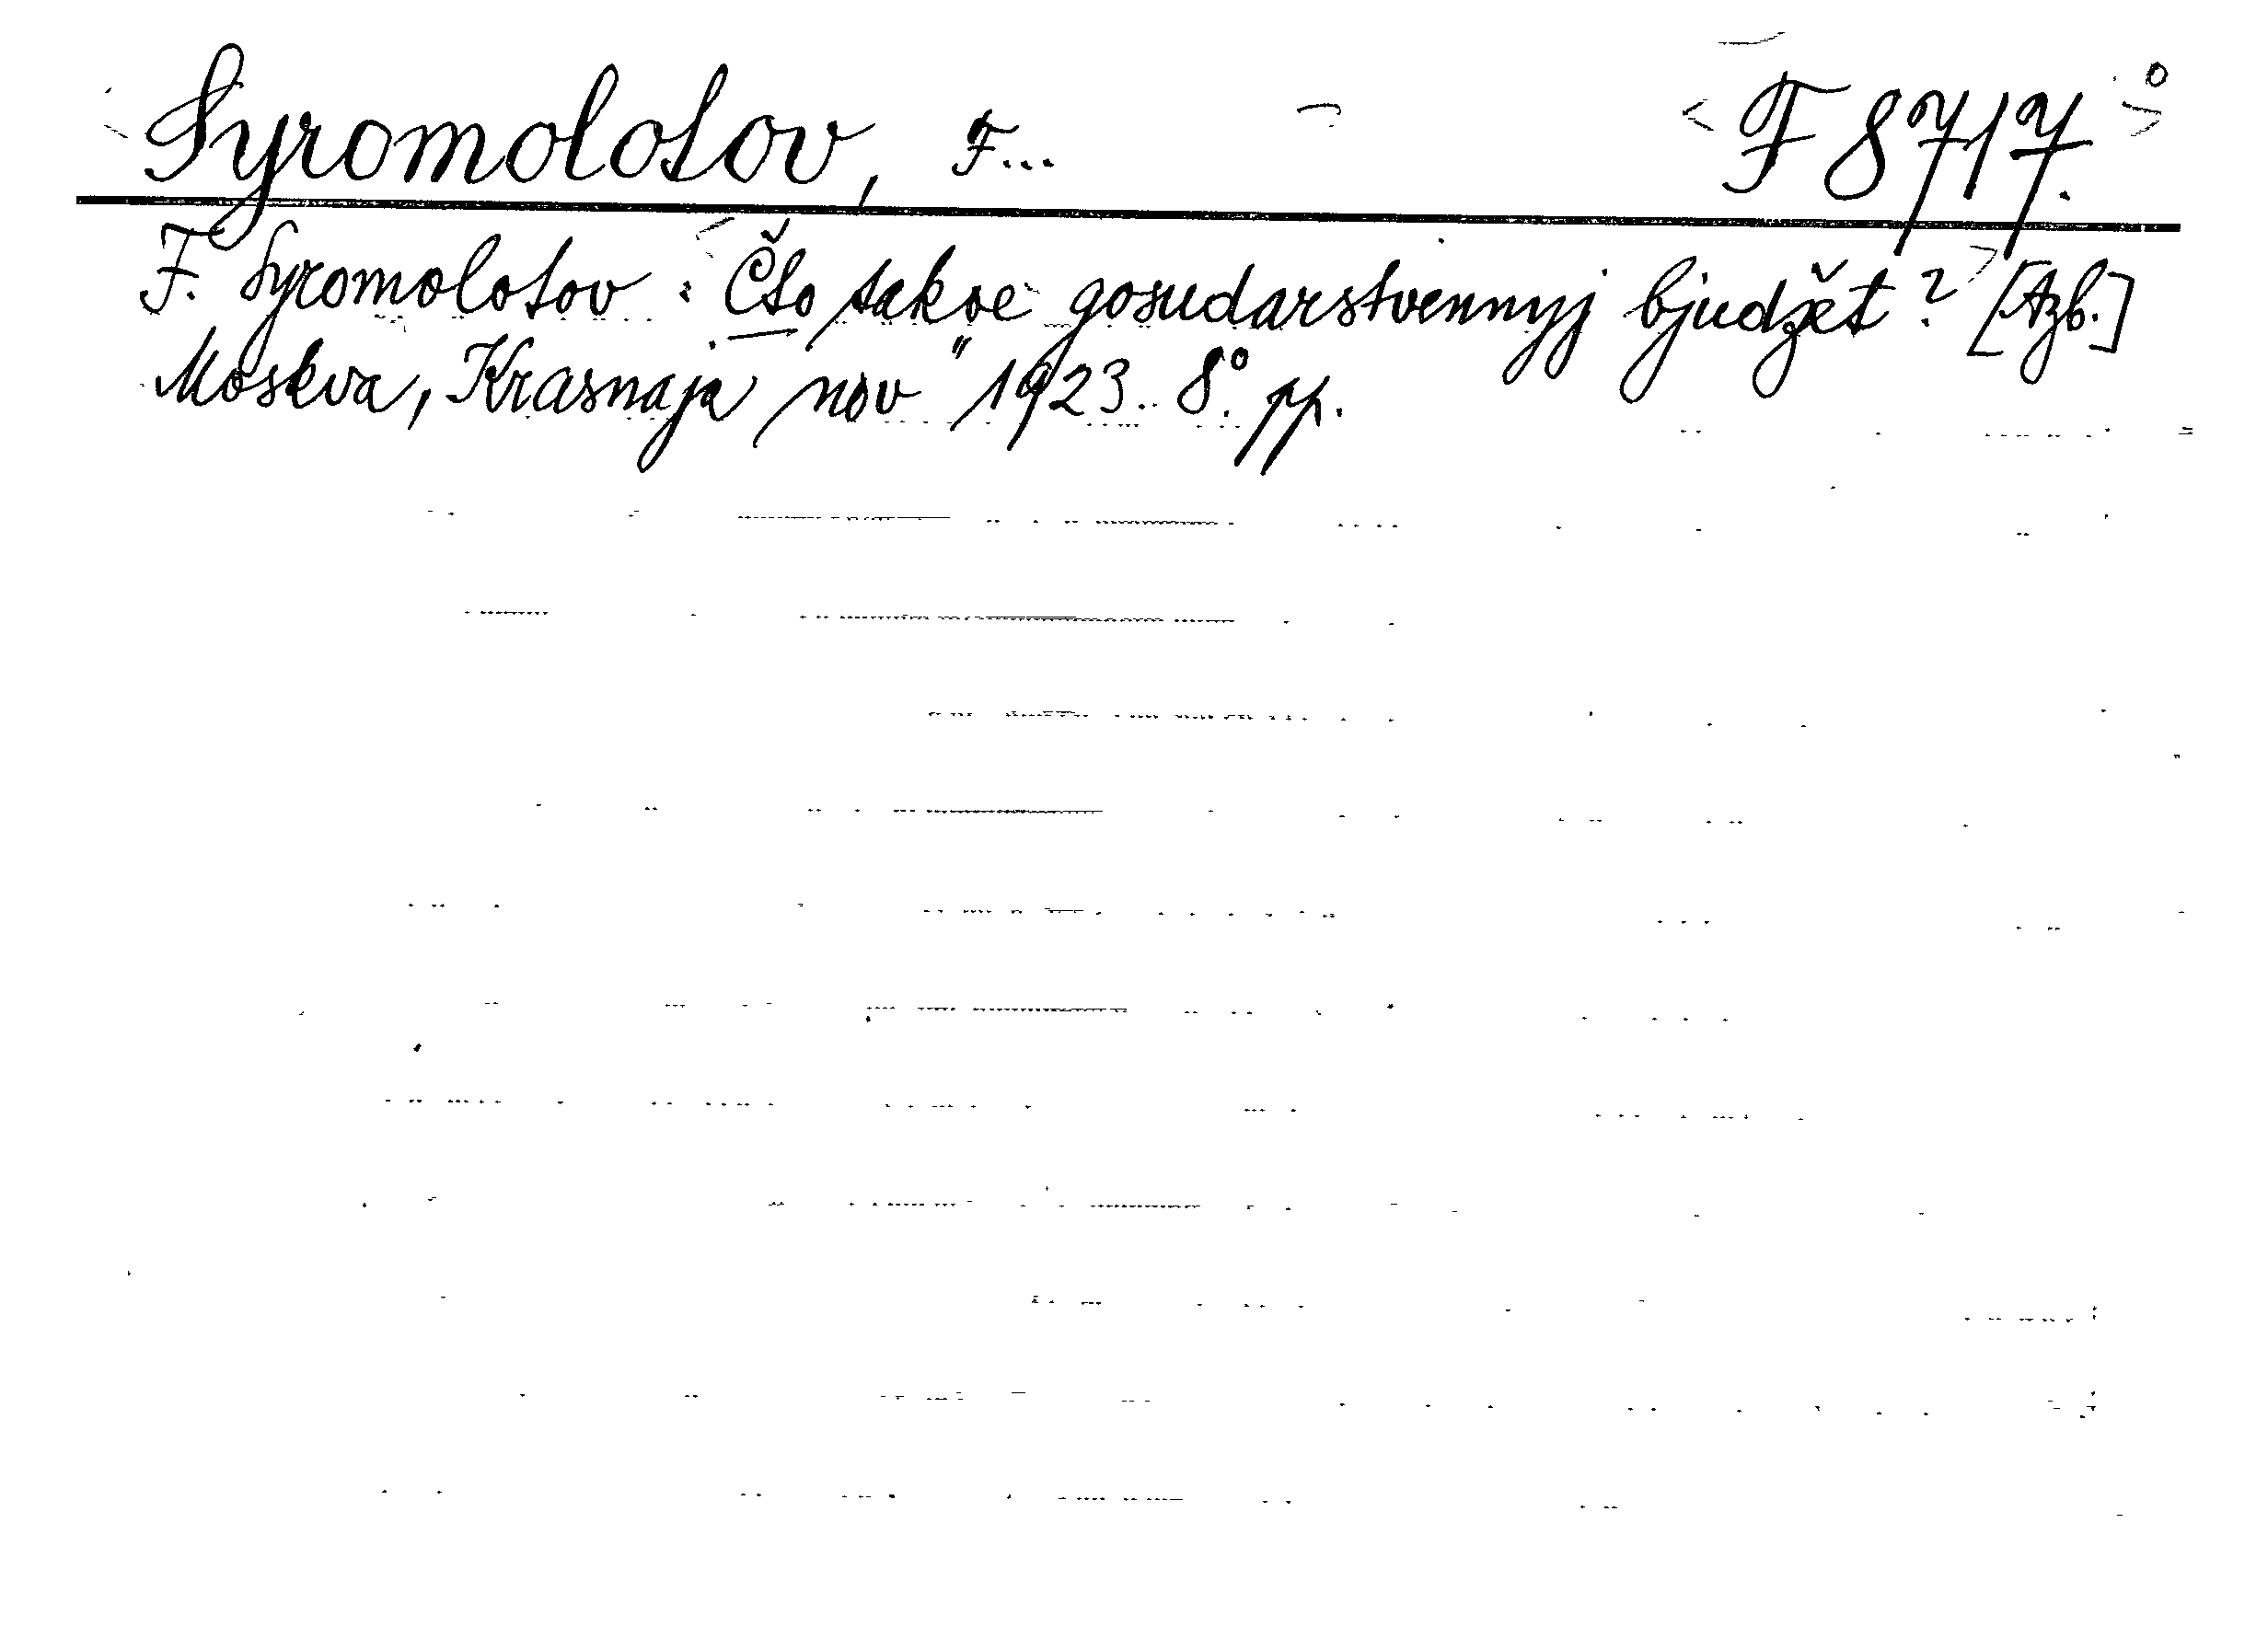 Syromolotov, F... F 8717.°
F. Syromolotov: Čto takoe gosudarstvennyj bjudžet? [Azb.]
Moskva, „Krasnaja nov" 1923. 8° pp.